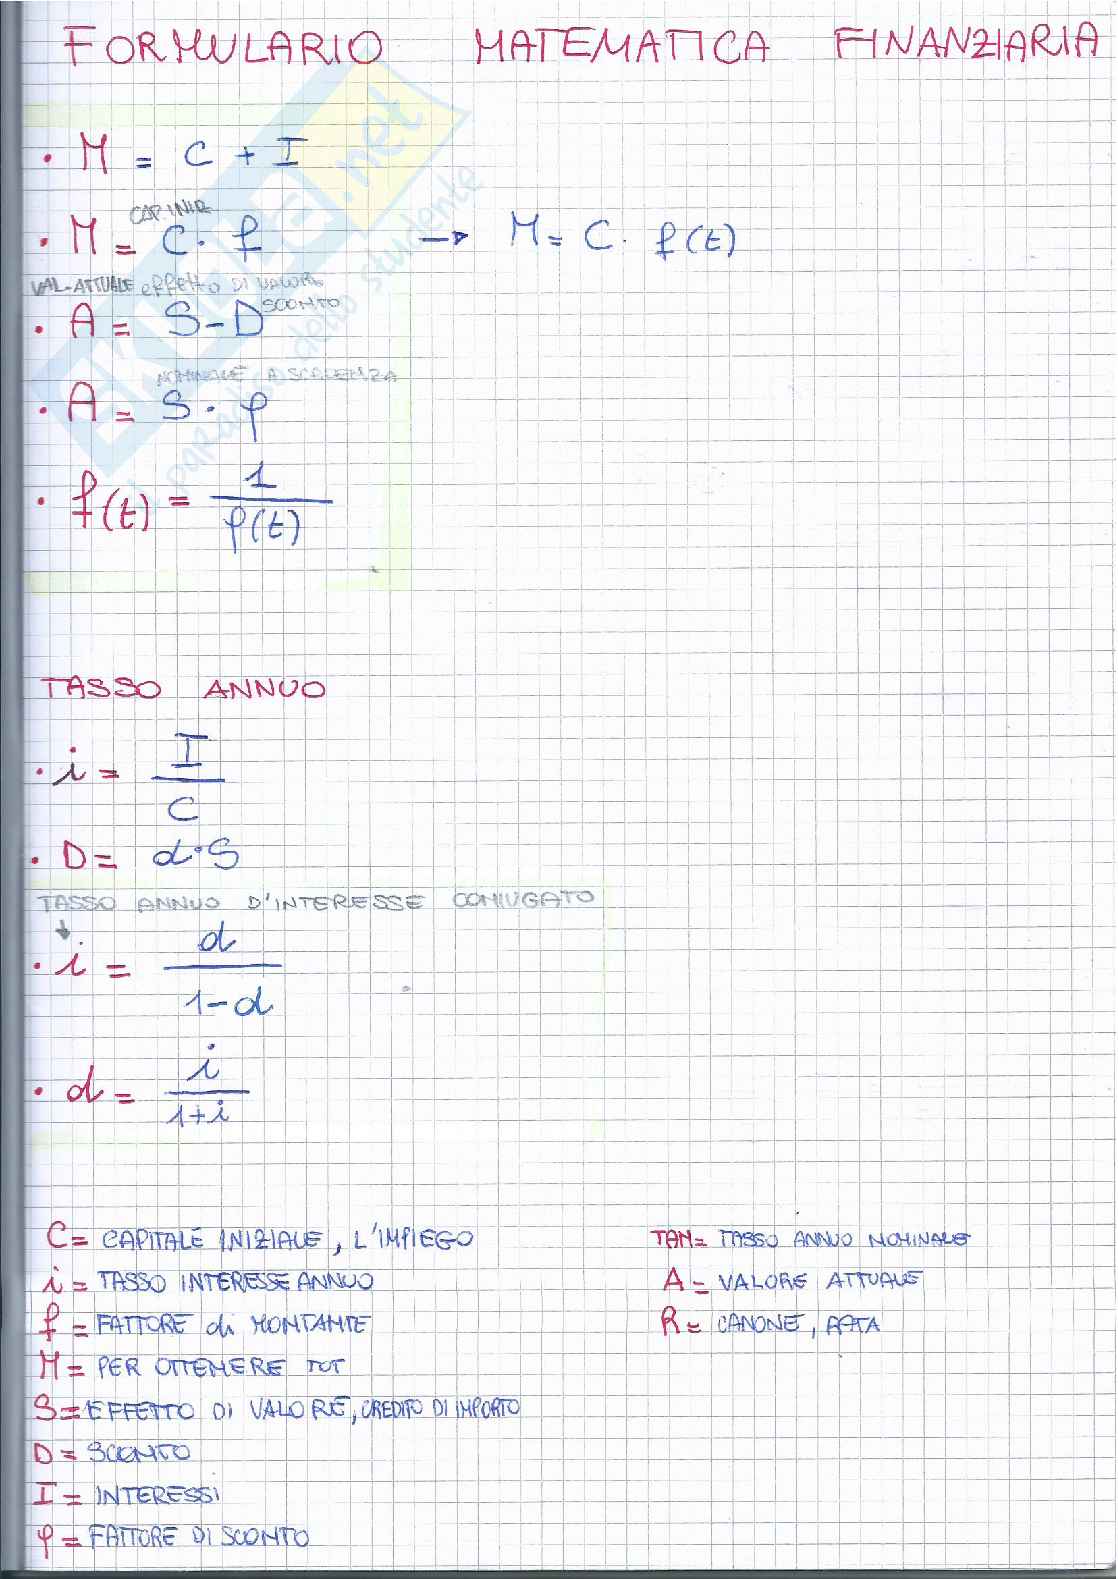 FORMULARIO MATEMATICA FINANZIARIA
• M = C + I
CAP. INIZ
• M = C · f → M = C · f(t)
VAL-ATTUALE effetto DI VALORE
SCONTO
• A = S - D
NOMINALE A SCADENZA
• A = S · φ
• f(t) = 1
φ(t)
TASSO ANNUO
• i = I
C
• D = d · S
TASSO ANNUO D'INTERESSE CONIUGATO
↓
• i = d
1 - d
• d = i
1 + i
C = CAPITALE INIZIALE, L'IMPIEGO
TAN = TASSO ANNUO NOMINALE
i = TASSO INTERESSE ANNUO
A = VALORE ATTUALE
f = FATTORE di MONTANTE
R = CANONE, RATA
M = PER OTTENERE TOT
S = EFFETTO DI VALORE, CREDITO DI IMPORTO
D = SCONTO
I = INTERESSI
φ = FATTORE DI SCONTO
skuola.net
il paradiso dello studente